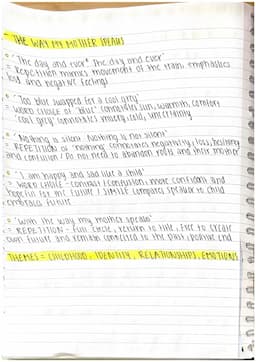 THE WAY MY MOTHER SPEAKS
"The day and ever* The day and ever"
= Repetition mimics movement of the train, emphasises
and negative feelings
"Too blue swapped for a cool grey"
= WORD CHOICE of "blue" connotates sun, warmth, comfort
"cool grey" connotates misery, cold, uncertainty
"Nothing is silent. Nothing is not silent"
= REPETITION of "nothing" connotates negativity, loss,
and confusion / Do not need to abandon roots and their mother
"I am happy and sad like a child"
= WORD CHOICE - contrast / confusion, more confident and
hopeful for the future / SIMILE compares speaker to child
embrace future
"with the way my mother speaks"
= REPETITION - full circle, return to title, free to create
own future and remain connected to the past, positive end
THEMES = CHILDHOOD, IDENTITY, RELATIONSHIPS, EMOTIONS